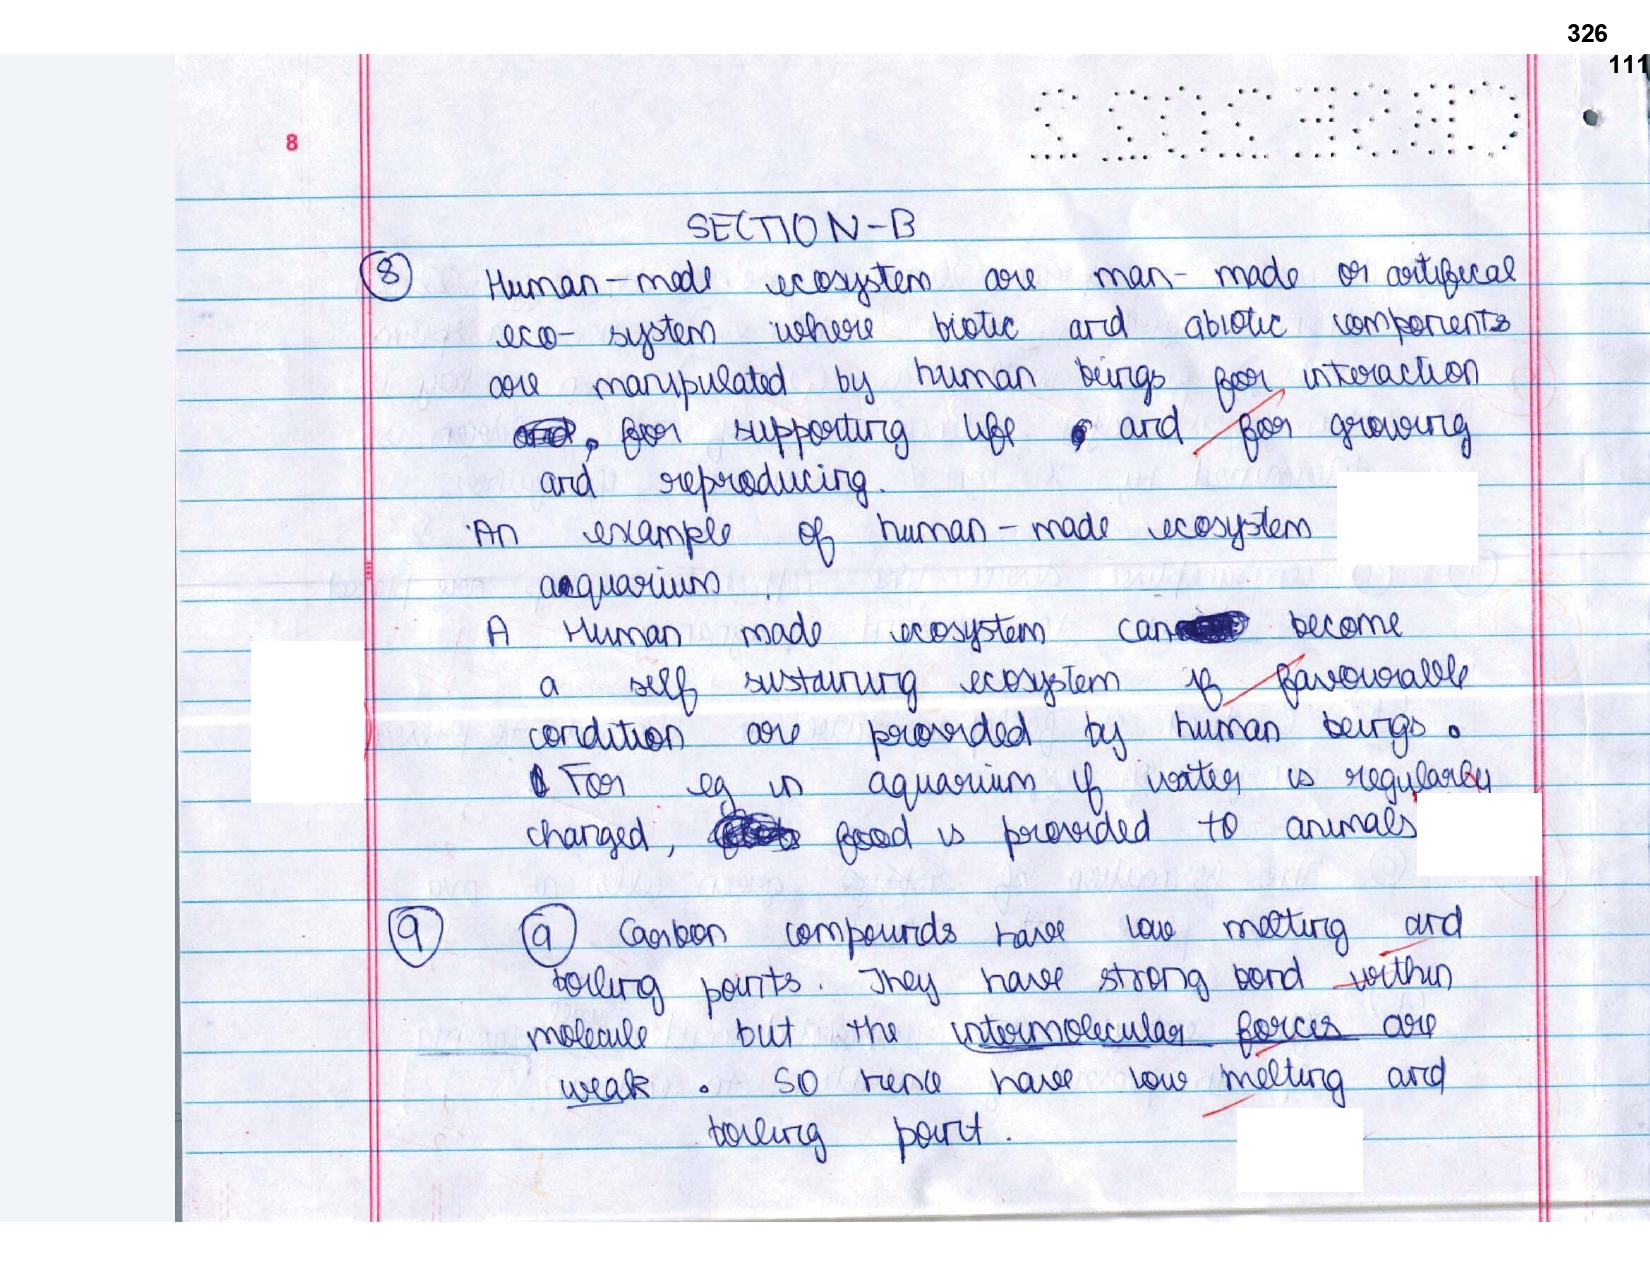 326
111
CBSE 2022
8
SECTION-B
8 Human-made ecosystem are man-made or artifical
eco-system where biotic and abiotic components
are manipulated by human beings for interaction
, for supporting life and for growing
and reproducing.
An example of human-made ecosystem
aquarium.
A Human made ecosystem can become
a self sustaining ecosystem if favourable
condition are provided by human beings.
For eg in aquarium if water is regularly
changed, food is provided to animals
9 a Carbon compounds have low melting and
boiling points. They have strong bond within
molecule but the intermolecular forces are
weak. SO hence have low melting and
boiling point.